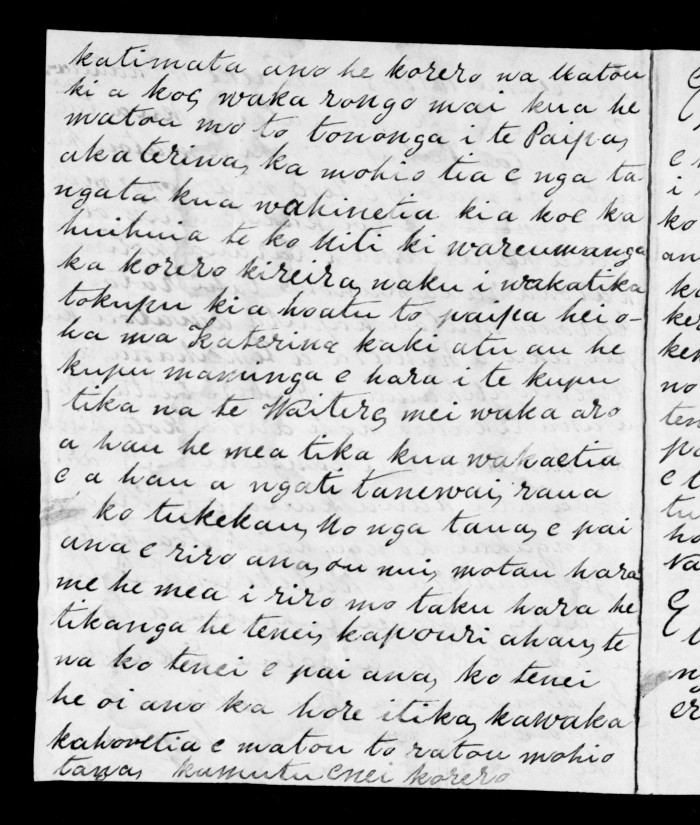 katimata ano he korero na Matou
ki a koe, waka rongo mai kua he
matou mo to tononga i te Paipa,
akaterina, ka mohio tia e nga ta-
ngata kua wahinetia ki a koe ka
huihuia te ko Miti ki wareumanga
ka korero kireira, naku i wakatika
tokupu ki a hoatu to paipa hei o-
ha ma Katerina kaki atu au he
kupu manunga e hara i te kupu
tika na te Waitere, mei waka aro
a hau he mea tika kua wakaetia
e, a hau a ngati tanewai, raua
ko tukekau, No nga taua, e pai
ana e riro ana, ou nui, motau hara
me he mea i riro mo taku hara he
tikanga he tenei, kapouri ahau, te
na ko tenei e pai ana, ko tenei
he oi ano ka hore itika, kawaka
kahoretia e matou to ratou mohio
tanga, kamutu enei korero
G
e
i
ko
an
ko
ke
ken
no
ten
pa
e
tu
ho
Na
E
n
er